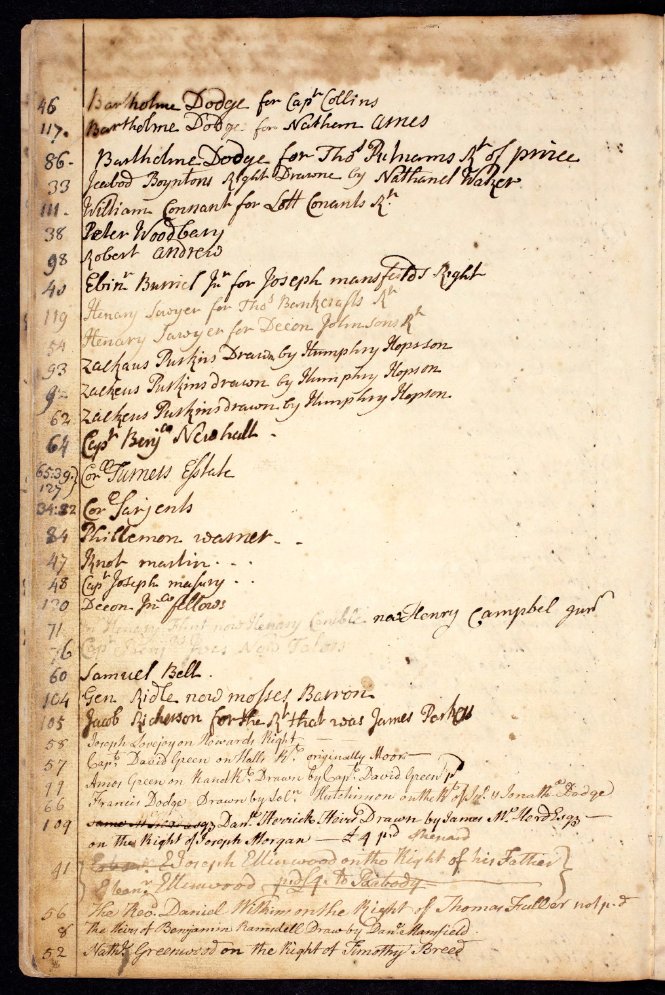 46 Bartholme Dodge for Capt Collins
117. Bartholme Dodge for Nathem ames
86- Bartholme Dodge for Thos Putnams Rt of prince
33 Jeabod Boyntons Right Drawne by Nathanel Waker
111. William Connant for Lott Conants Rt
38 Peter Woodbary
98 Robert andrew
40 Ebinr Burriel Jnr for Joseph mansfields Right
119 Henary Sawyer for Thos Bankcrafts Rt
54 Henary Sawyer for Decon Johnsons Rt
93 Zackaus Purkins Drawn by Humphry Hopsson
92 Zackeus Purkins drawn by Humphry Hopson
62 Zackeus Purkins drawn by Humphry Hopson
64 Capt Benja Newhall.
65:39.) Corll Turners Esstate
127
34:82 Corll Sarjents
84 Phillemon warner - -
47 Knot martin - - -
48 Capt Joseph masury - -
120 Decon Jno fellows
71 Henary now Henary now Henry Campbel gunr
76 Capt
60 Samuel Bell.
104 Gen Ridle now mosses Barron
105 Jacob Richerson for the Rt that was James Parkes
58 Joseph Lovejoy on Howards Right —
57 Capt. David Green on Halls Rt. originally Moor —
77 Amos Green on Rand Rt. Drawn by Capt. David Green pd
66 Francis Dodge Drawn by Soln Hutchinson on the Rt of Jonathn Dodge
109 Danl. Herrick Heirs Drawn by James Mc. Herd Esqr —
on the Right of Joseph Morgan — £4 pd
41 Joseph Ellinwood on the Right of his Father
Ebenr. Ellinwood pd £4. to Peabody
56 The Revd. Daniel Wilkins on the Right of Thomas Fuller not pd
8 the Heirs of Benjamin Ramsdell Draw by Danl. Mansfield
52 Nathl. Greenwood on the Right of Timothy Breed